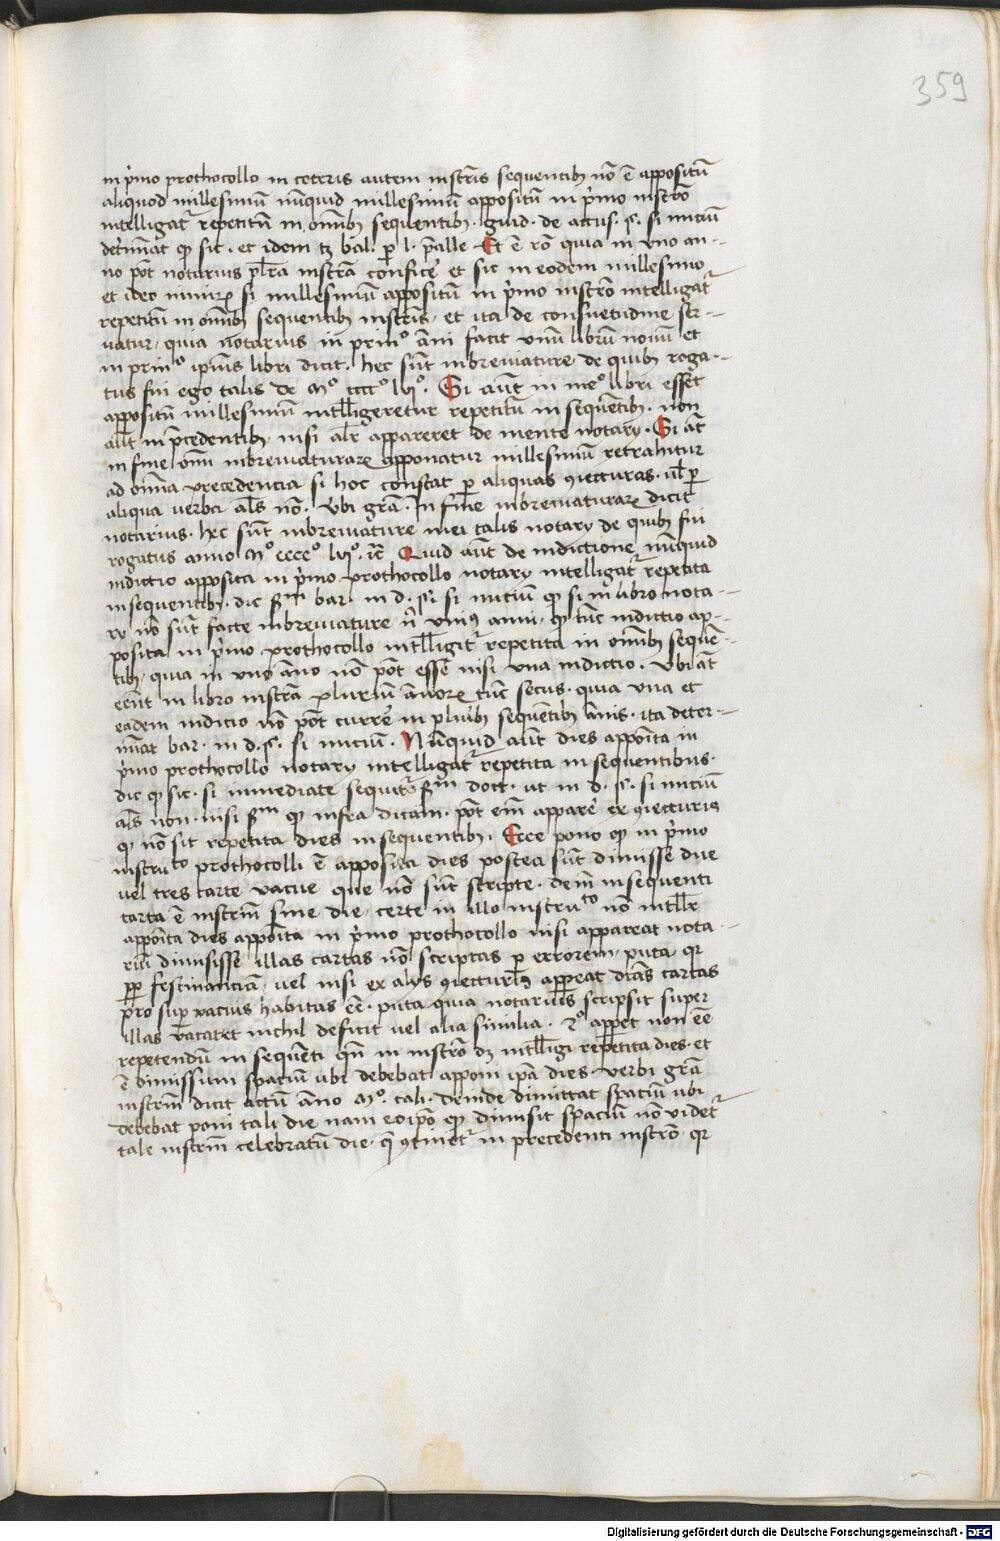 359
in p̃mo prothocollo in ceteris autem instr̃is sequentibꝫ nõ ẽ appositũ
aliquod millesimũ nũquid millesimũ appositũ in p̃mo instrõ
intelligat᷑ repetitũ in om̃ibꝫ sequentibꝫ. guid. de accus. §. si initiũ
det͛minat ꝙ sic. et idem tꝫ bal. ꝑ l. p̃alle Et ẽ rõ quia in vno an-
no põt notarius pl̃ra instr̃a confic͛e et sic in eodem millesimo
et ideo nimirꝝ si millesimũ appositũ in p̃mo instrõ intelligat᷑
repetitũ in om̃ibꝫ sequentibꝫ instr̃is. et ita de consuetudine ser-
uatur. quia notarius in prinᵒ ãni facit vnũ librũ nouũ et
in prinᵒ ip̃ius libri dicit. hec sũt inbreuiature de quibꝫ roga-
tus fui ego talis de Mᵒ ccccᵒ lvjᵒ. Si aũt in meᵒ libri esset
appositũ millesimũ intell̃igeretur repetitũ in sequẽtibꝫ. non
aũt in p̃cedentibꝫ nisi al̃r appareret de mente notarij. Si aũt
in fine om̃i inbreuiaturarꝝ apponatur millesimũ retrahitur
ad om̃ia precedencia si hoc constat ꝑ aliquas ꝯiecturas. ul̃ ꝑ
aliqua verba al̃s nõ. Vbi gr̃a. in fine inbreuiaturarꝝ dicit
notarius. hec sũt inbreuiature mei talis notarij de quibꝫ fui
rogatus anno Mᵒ ccccᵒ lvjᵒ. ic̃ Quid aũt de indictione nũquid
indictio apposita in p̃mo prothocollo notarij intelligat᷑ repetita
in sequentibꝫ. dic ẜm bar. in d. §. si initiũ ꝙ si in libro nota-
rij nõ sũt facte inbreuiature nĩ vniꝰ anni. ꝙ tũc indictio ap-
posita in p̃mo prothocollo intell̃igit᷑ repetita in om̃ibꝫ sequẽ-
tibꝫ. quia in vno ãno nõ põt esse nisi vna indictio. Vbi aũt
eẽnt in libro instr̃a pluriũ ãnorꝝ tũc secus. quia vna et
eadem indictio nõ põt curr͛e in pluribꝫ sequẽtibꝫ ãnis. ita deter-
minat bar. in d. §. si initiũ. Nũquid aũt dies apponita in
p̃mo prothocollo notarij intelligat᷑ repetita in sequentibus.
dic ꝙ sic. si inmediate sequit᷑ ẜm doct. ut in d. §. si initiũ
al̃s non. nisi ẜm ꝙ infra dicam. põt em̃ appar͛e ex ꝯiecturis
ꝙ nõ sit repetita dies in sequentibꝫ. Ecce pono ꝙ in p̃mo
instruᵗᵒ prothocolli ẽ apposita dies postea sũt dimisse due
uel tres carte vacue que nõ sũt scripte. dein̄ in sequenti
carta ẽ instrm̃ sine die. certe in illo instruᵗᵒ nõ intell̃r
apponita dies apponita in p̃mo prothocollo nisi appareat nota-
riũ dimisisse illas cartas nõ scriptas ꝑ errorem. puta. qꝛ
ꝓp̃ festinanciã. uel nisi ex alijs ꝯiecturis appeat dc̃as cartas
pro sup vacuis habitas eẽ. puta quia notarius scripsit super
illas vacatet nichil deficit uel alia similia. 2ᵒ apꝑet non eẽ
repetendũ in sequẽti qñ in instrõ dꝫ intell̃igi repetita dies. et
ẽ dimissum spaciũ ubi debebat apponi ip̃a dies. verbi gr̃a
instrm̃ dicit actũ ãno Mᵒ. tali. deinde dimittat spaciũ ubi
debebat poni tali die nam eoip̃o ꝙ dimisit spaciũ nõ videt᷑
tale instrm̃ celebratũ die. q̃ ꝯtinet᷑ in precedenti instrõ. qꝛ
Digitalisierung gefördert durch die Deutsche Forschungsgemeinschaft - DFG